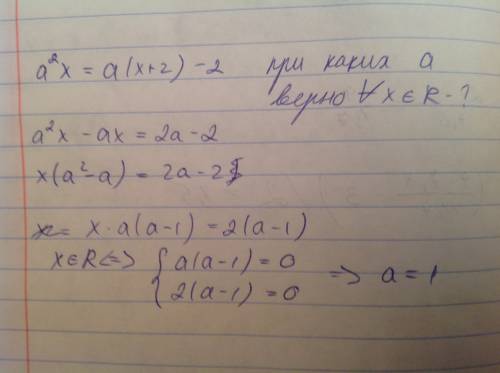 a²x = a(x+2) - 2 при каких a
верно ∀ x ∈ R - ?
a²x - ax = 2a - 2
x(a² - a) = 2a - 2
x · a(a-1) = 2(a-1)
x ∈ R <=> { a(a-1) = 0 => a = 1
{ 2(a-1) = 0